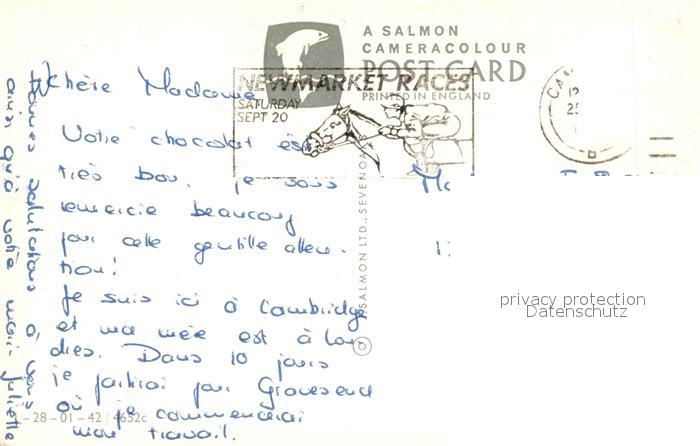 A SALMON
CAMERACOLOUR
POST CARD
PRINTED IN ENGLAND
NEWMARKET RACES
SATURDAY
SEPT 20
Chère Madame
Votre chocolat est
très bon. je vous
remercie beaucoup
pour cette gentille atten-
tion!
Je suis ici à Cambridge
et ma mère est à Lon-
dres. Dans 10 jours
je partirai pour Gravesend
où je commencerai
mon travail.
Bonnes salutations à vous
ainsi qu'à votre mari - Juliette
J. SALMON LTD., SEVENOAKS ©
1 - 28 - 01 - 42 / 4652c
privacy protection
Datenschutz